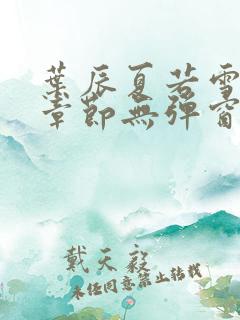 葉辰夏若雪
章節無彈窗
戴天毅
未經同意禁止轉載